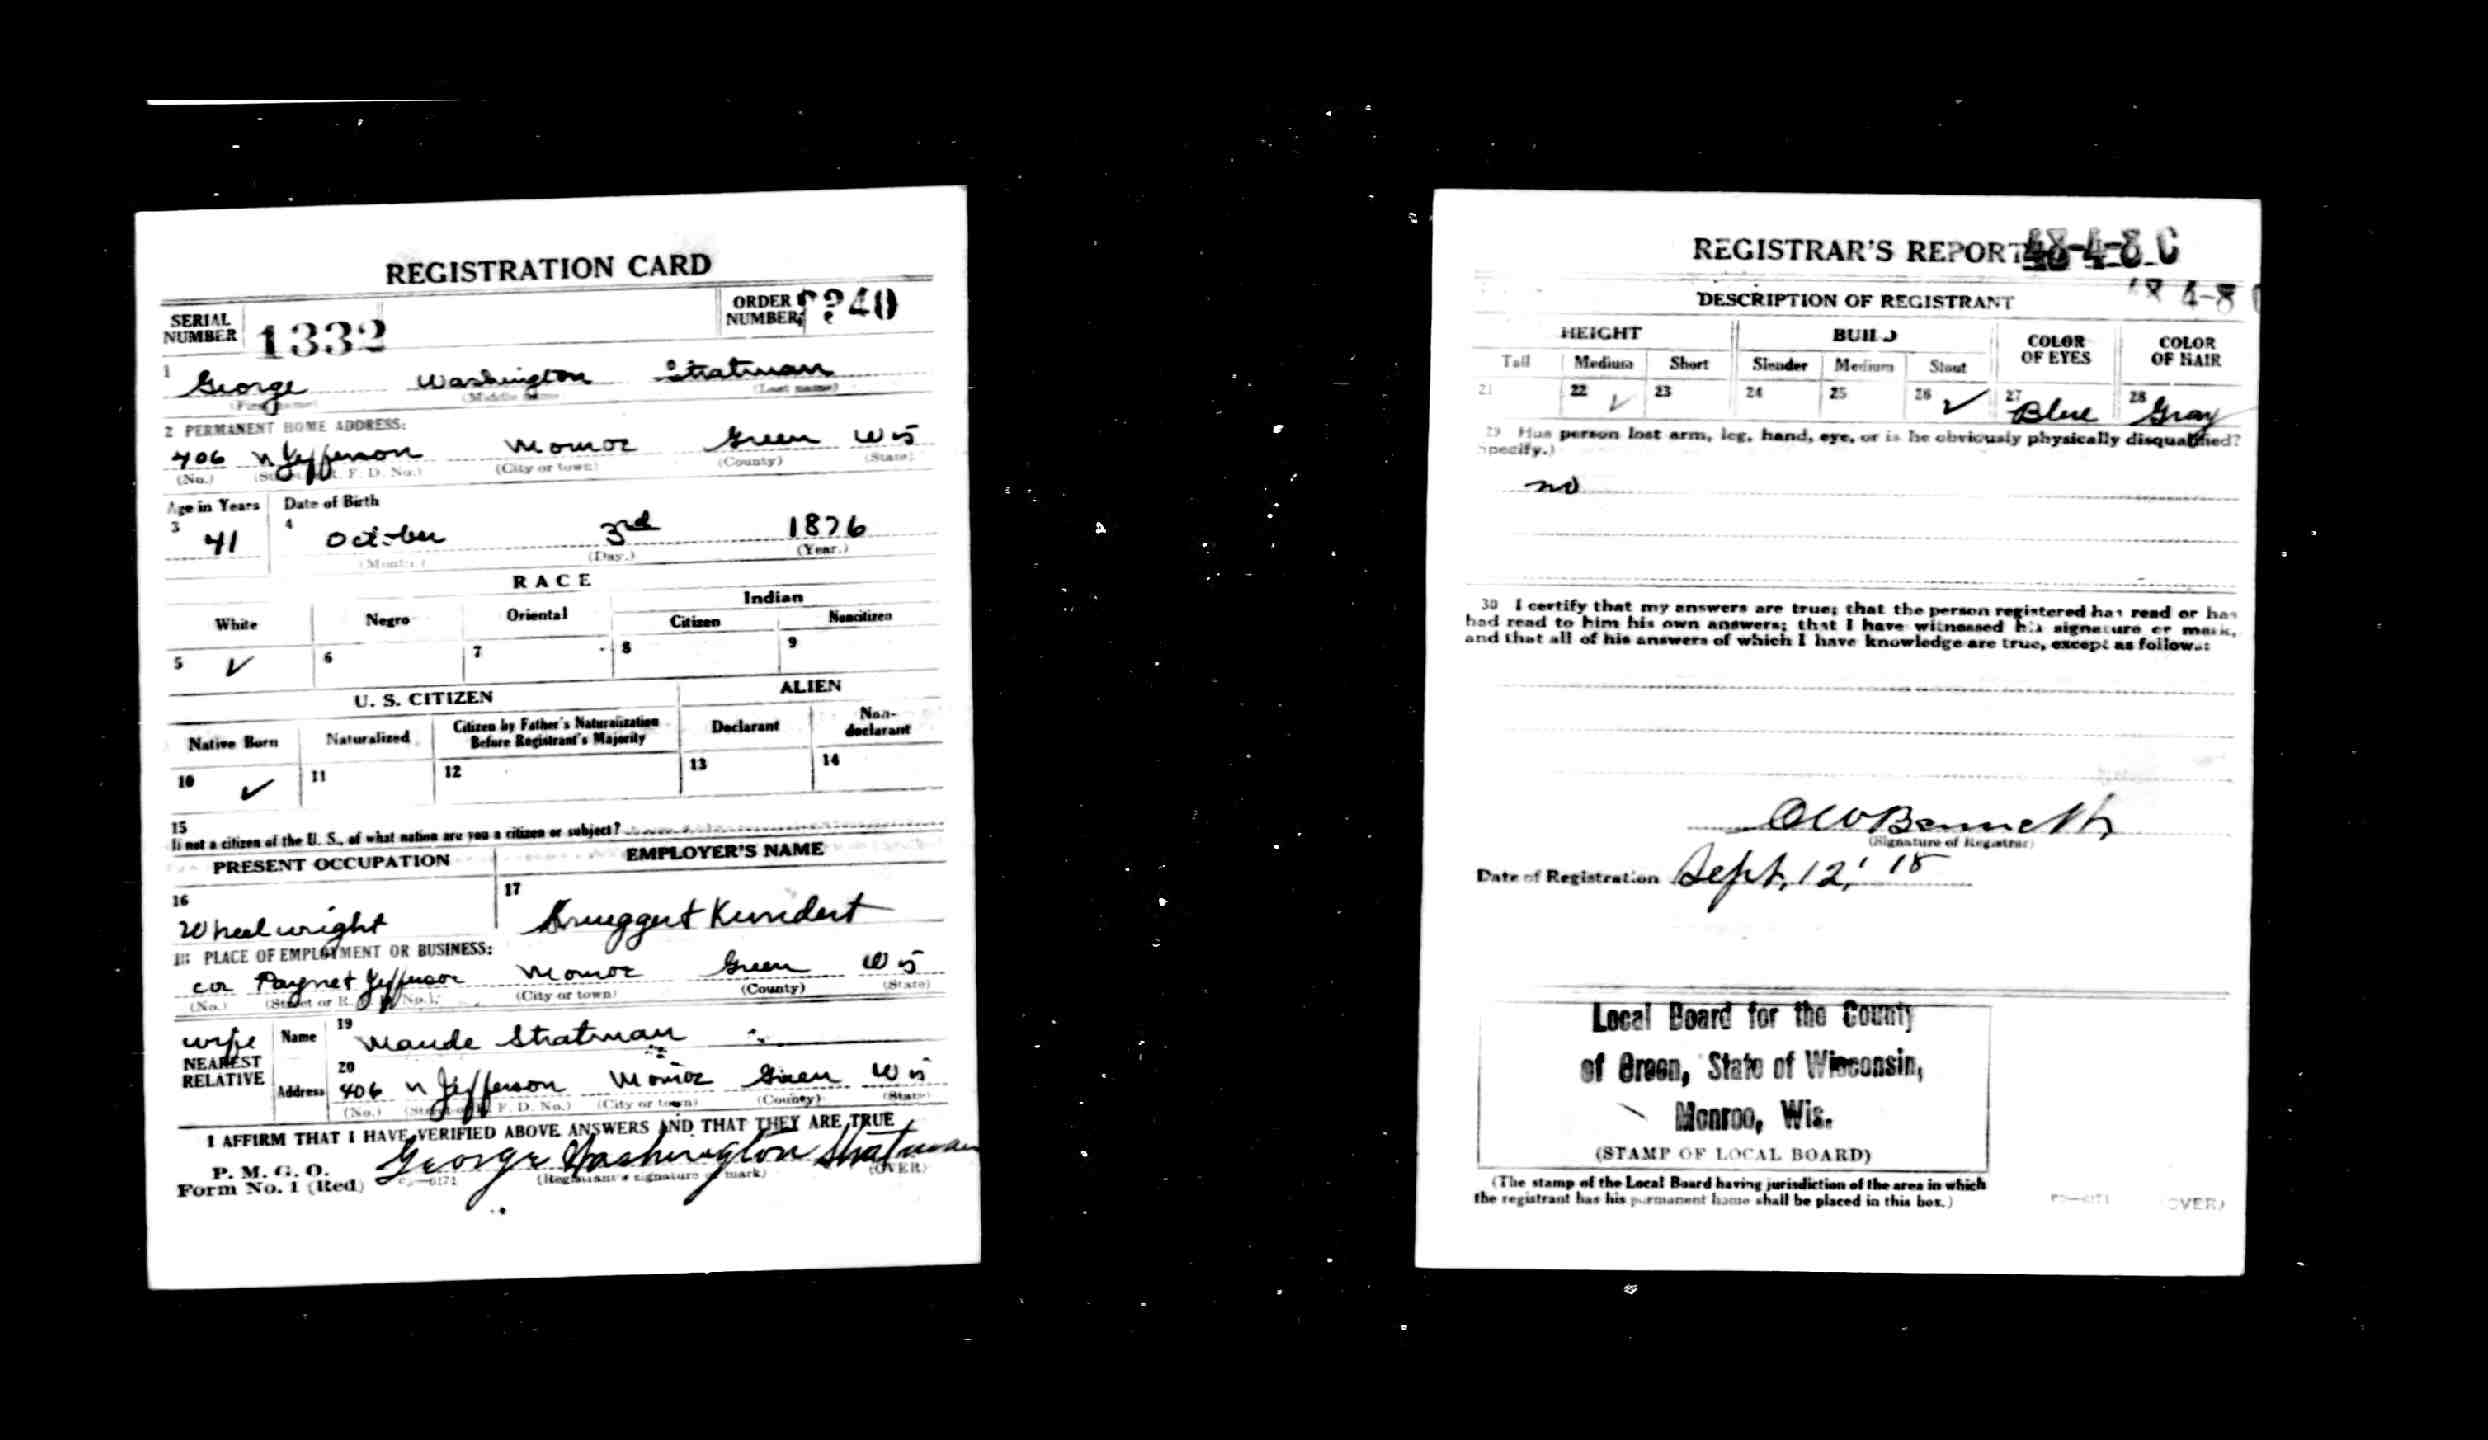 REGISTRATION CARD
SERIAL NUMBER 1332 ORDER NUMBER
1 George Washington Stratman
(First name) (Middle name) (Last name)
2 PERMANENT HOME ADDRESS:
406 N Jefferson Monroe Green Wis
(No.) (Street or R. F. D. No.) (City or town) (County) (State)
Age in Years Date of Birth
3 41 4 October 3rd 1876
(Month.) (Day.) (Year.)
RACE
White Negro Oriental Indian
Citizen Noncitizen
5 ✓ 6 7 8 9
U. S. CITIZEN ALIEN
Native Born Naturalized Citizen by Father's Naturalization Before Registrant's Majority Declarant Non-declarant
10 ✓ 11 12 13 14
15
If not a citizen of the U. S., of what nation are you a citizen or subject?
PRESENT OCCUPATION EMPLOYER'S NAME
16 Wheelwright 17 Kundert
18 PLACE OF EMPLOYMENT OR BUSINESS:
cor Payne & Jefferson Monroe Green Wis
(No.) (Street or R. F. D. No.) (City or town) (County) (State)
wife Name 19 Maude Stratman
NEAREST RELATIVE
Address 20 406 N Jefferson Monroe Green Wis
(No.) (Street or R. F. D. No.) (City or town) (County) (State)
I AFFIRM THAT I HAVE VERIFIED ABOVE ANSWERS AND THAT THEY ARE TRUE
P. M. G. O.
Form No. 1 (Red) George Washington Stratman
(Registrant's signature or mark) (OVER)
REGISTRAR'S REPORT 48-4-8 C
DESCRIPTION OF REGISTRANT
HEIGHT BUILD COLOR OF EYES COLOR OF HAIR
Tall Medium Short Slender Medium Stout
21 22 ✓ 23 24 25 26 ✓ 27 Blue 28 Gray
29 Has person lost arm, leg, hand, eye, or is he obviously physically disqualified?
(Specify.)
no
30 I certify that my answers are true; that the person registered has read or has
had read to him his own answers; that I have witnessed his signature or mark,
and that all of his answers of which I have knowledge are true, except as follows:
O W Bennett
(Signature of Registrar)
Date of Registration Sept, 12, '18
Local Board for the County
of Green, State of Wisconsin,
Monroe, Wis.
(STAMP OF LOCAL BOARD)
(The stamp of the Local Board having jurisdiction of the area in which
the registrant has his permanent home shall be placed in this box.)
(OVER)